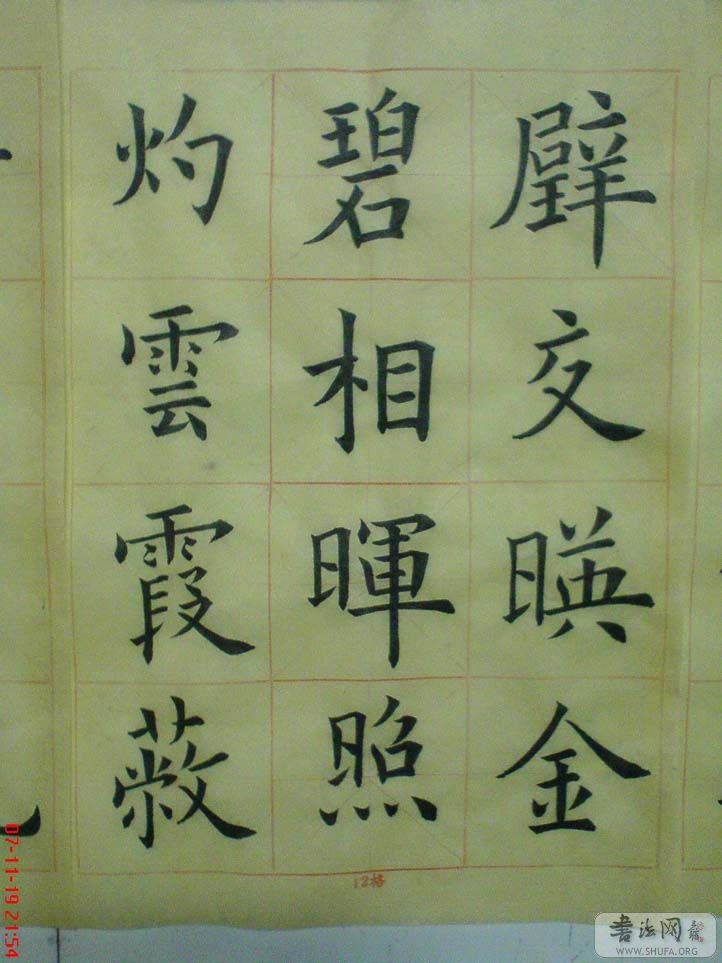 璧交暎金
碧相暉照
灼雲霞蔽
12格
07-11-19 21:54
书法网
WWW.SHUFA.ORG